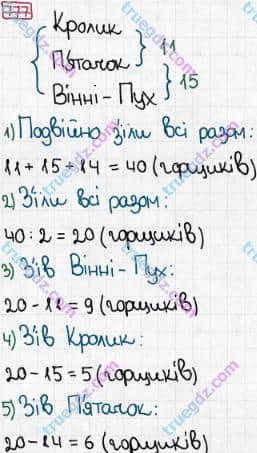 777
Кролик
Пʼятачок
Вінні-Пух
11
15
1) Подвійно з'їли всі разом:
11+15+14=40 (горщиків)
2) З'їли всі разом:
40:2=20 (горщиків)
3) З'їв Вінні-Пух:
20-11=9 (горщиків)
4) З'їв Кролик:
20-15=5 (горщиків)
5) З'їв П'ятачок:
20-14=6 (горщиків)
truegdz.com